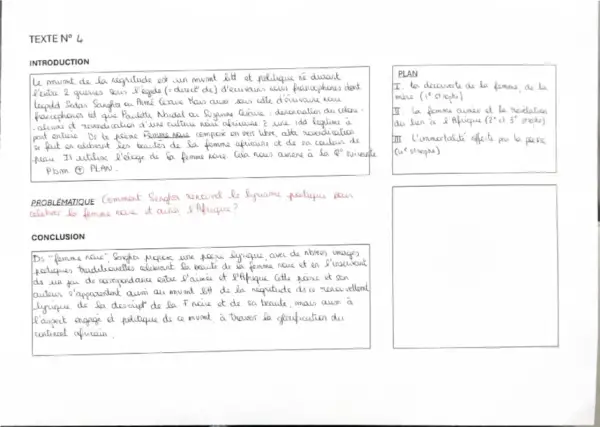 TEXTE N° 4
INTRODUCTION
Le mvmt de la négritude est un mvmt litt et politique né durant
l'entre 2 guerres sous l'égide (= direct° de) d'écrivains noirs francophones dont
Léopold Sédar Senghor ou Aimé Césaire Mais aussi sous celle d'écrivaine noire
francophones tel que Paulette Nardal ou Suzanne Césaire : dénonciation du colon-
-alisme et revendication d'une culture noire africaine
part entière Ds le poème Femme noire composé en vers libre, cette revendication
se fait en célébrant les beautés de la femme africaine et de sa couleur de
peau Il utilise l'éloge de la femme noire Cela nous amène à la
Pbm ⊕ PLAN
PROBLÉMATIQUE Comment Senghor renouvel le lyrisme poétique pour
célébrer la femme noire et aussi l'Afrique ?
CONCLUSION
Ds "femme noire", Senghor propose une poésie lyrique, avec de nbrses images
poétiques traditionnelles célébrant la beauté de la femme noire et en l'inscrivant
ds un jeu de correspondance entre l'aimée et l'Afrique Cette poésie et son
auteur s'apparentent aussi au mvmt litt de la négritude ds ce renouvellement
lyrique de la descript° de la F noire et de sa beauté, mais aussi à
l'aspect engagé et politique de ce mvmt, à travers la glorification du
continent africain.
PLAN
I. La découverte de la femme, de la
mère (1° strophe)
II La femme aimée et la révélation
du lien à l'Afrique (2° et 3° strophe)
III L'immortalité offerte par la poésie
(4° strophe)